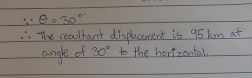 ∵ θ = 30°
∴ The resultant displacement is 95 km at
angle of 30° to the horizontal.